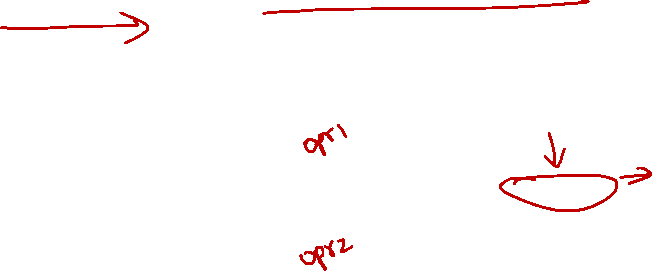 opr1
opr2